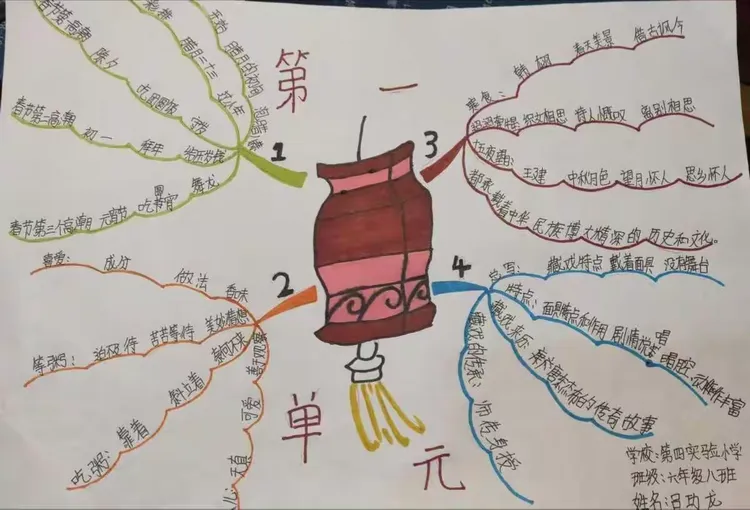 第一
单元
1
开始 腊月的初旬 泡腊八蒜
腊月二十三 过小年
春节第一高潮 除夕 吃团圆饭 守岁
春节第二高潮 初一 拜年 给压岁钱
春节第三个高潮 元宵节 吃元宵 舞龙
2
喜爱: 成分 做法 香味
等粥: 迫不及待 苦苦等待 美妙猜想
吃粥: 靠着 斜立着
可爱
天真
3
寒食: 韩翃 春天美景 借古讽今
迢迢牵牛星 诗人慨叹 离别相思
十五夜望月: 王建 中秋月色 望月怀人 思乡怀人
都承载着中华民族博大精深的历史和文化。
4
总写: 藏戏特点 戴着面具 没有舞台
特点: 面具特点和作用 唱腔 动作丰富
藏戏来历: 唐东杰布的传奇故事
藏戏的传承: 师传身授
学校:第四实验小学
班级:六年级八班
姓名:吕功龙